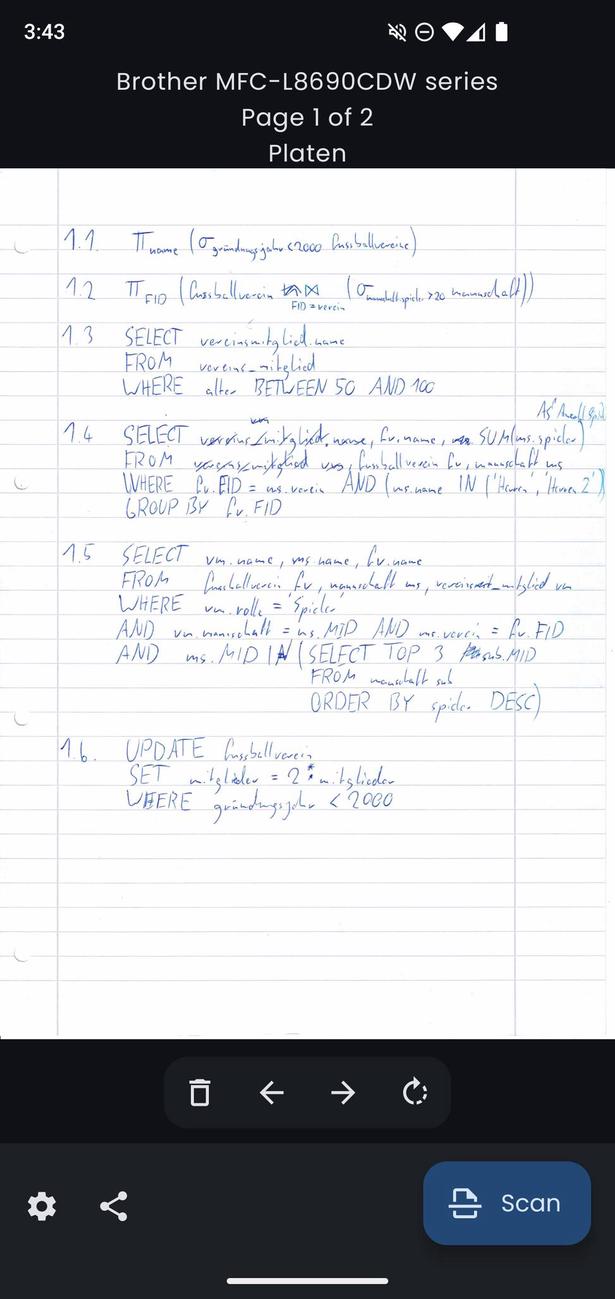 3:43
Brother MFC-L8690CDW series
Page 1 of 2
Platen
1.1. π name (σ gründungsjahr<2000 fussballvereine)
1.2 π FID (fussballverein ⋈ FID=verein (σ >20 mannschaft))
1.3 SELECT vereinsmitglied.name
FROM vereins_mitglied
WHERE alter BETWEEN 50 AND 100
As Anzahl
1.4 SELECT vm.name, fv.name, SUM(ms.spieler)
FROM fussballverein fv, mannschaft ms
WHERE fv.FID = ms.verein AND (ms.name IN ('Herren', 'Herren 2'))
GROUP BY fv.FID
1.5 SELECT vm.name, ms.name, fv.name
FROM fussballverein fv, mannschaft ms, vereins_mitglied vm
WHERE vm.rolle = 'Spieler'
AND vm.mannschaft = ms.MID AND ms.verein = fv.FID
AND ms.MID IN (SELECT TOP 3 sub.MID
FROM mannschaft sub
ORDER BY spieler DESC)
1.6. UPDATE fussballverein
SET mitglieder = 2 * mitglieder
WHERE gründungsjahr < 2000
Scan